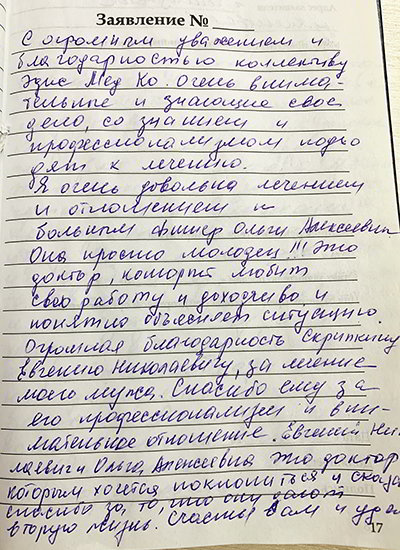 Заявление №
С огромным уважением и
благодарностью коллективу
Эдис Мед Ко. Очень внима-
тельные и знающие свое
дело, со знанием и
профессионализмом подхо
дят к лечению.
Я очень довольна лечением
и отношением к
больным Фишер Ольги Алексеевны
Она просто молодец!!! Это
доктор, который любит
свою работу и доходчиво и
понятно объясняет ситуацию.
Огромная благодарность Скрипкину
Евгению Николаевичу, за лечение
моего мужа. Спасибо ему за
его профессионализм и вни-
мательное отношение. Евгений Ник
лаевич и Ольга Алексеевна это доктор
которым хочется поклониться и сказа
спасибо за, то, что они делают
вторую жизнь. Счастья Вам и удач
17